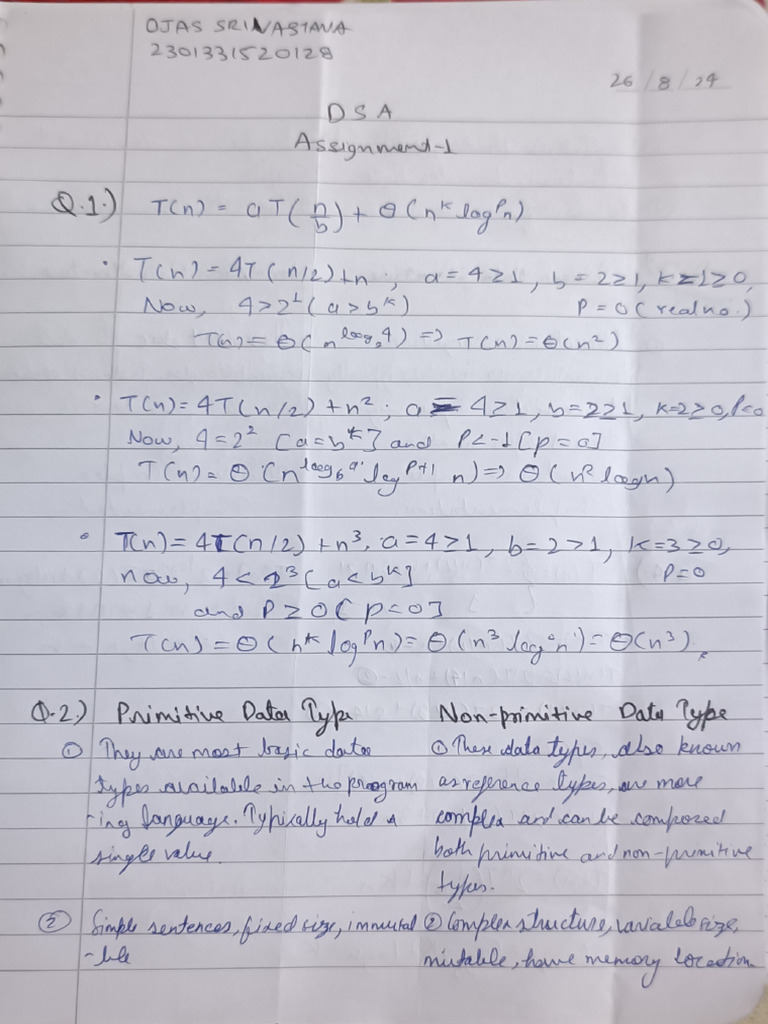 OJAS SRIVASTAVA
2301331520128
26/8/24
DSA
Assignment-1
Q.1.) T(n) = aT(n/b) + Θ(n^k log^p n)
• T(n) = 4T(n/2) + n ; a = 4 ≥ 1, b = 2 ≥ 1, k = 1 ≥ 0,
Now, 4 > 2^1 (a > b^k) P = 0 (real no.)
T(n) = Θ(n^log_2 4) => T(n) = Θ(n^2)
• T(n) = 4T(n/2) + n^2 ; a = 4 ≥ 1, b = 2 ≥ 1, k = 2 ≥ 0,
Now, 4 = 2^2 [a = b^k] and P < -1 [p = 0]
T(n) = Θ(n^log_b a log^p+1 n) => Θ(n^2 logn)
• T(n) = 4T(n/2) + n^3, a = 4 ≥ 1, b = 2 > 1, k = 3 ≥ 0,
now, 4 < 2^3 [a < b^k] P = 0
and P ≥ 0 [p = 0]
T(n) = Θ(n^k log^p n) = Θ(n^3 log^0 n) = Θ(n^3).
Q.2.) Primitive Data Type Non-primitive Data Type
① They are most basic data ① These data types, also known
types available in the program as reference types, are more
-ing language. Typically hold a complex and can be composed
single value. both primitive and non-primitive
types.
② Simple sentences, fixed size, immuta ② Complex structure, variable size,
-ble mutable, have memory location